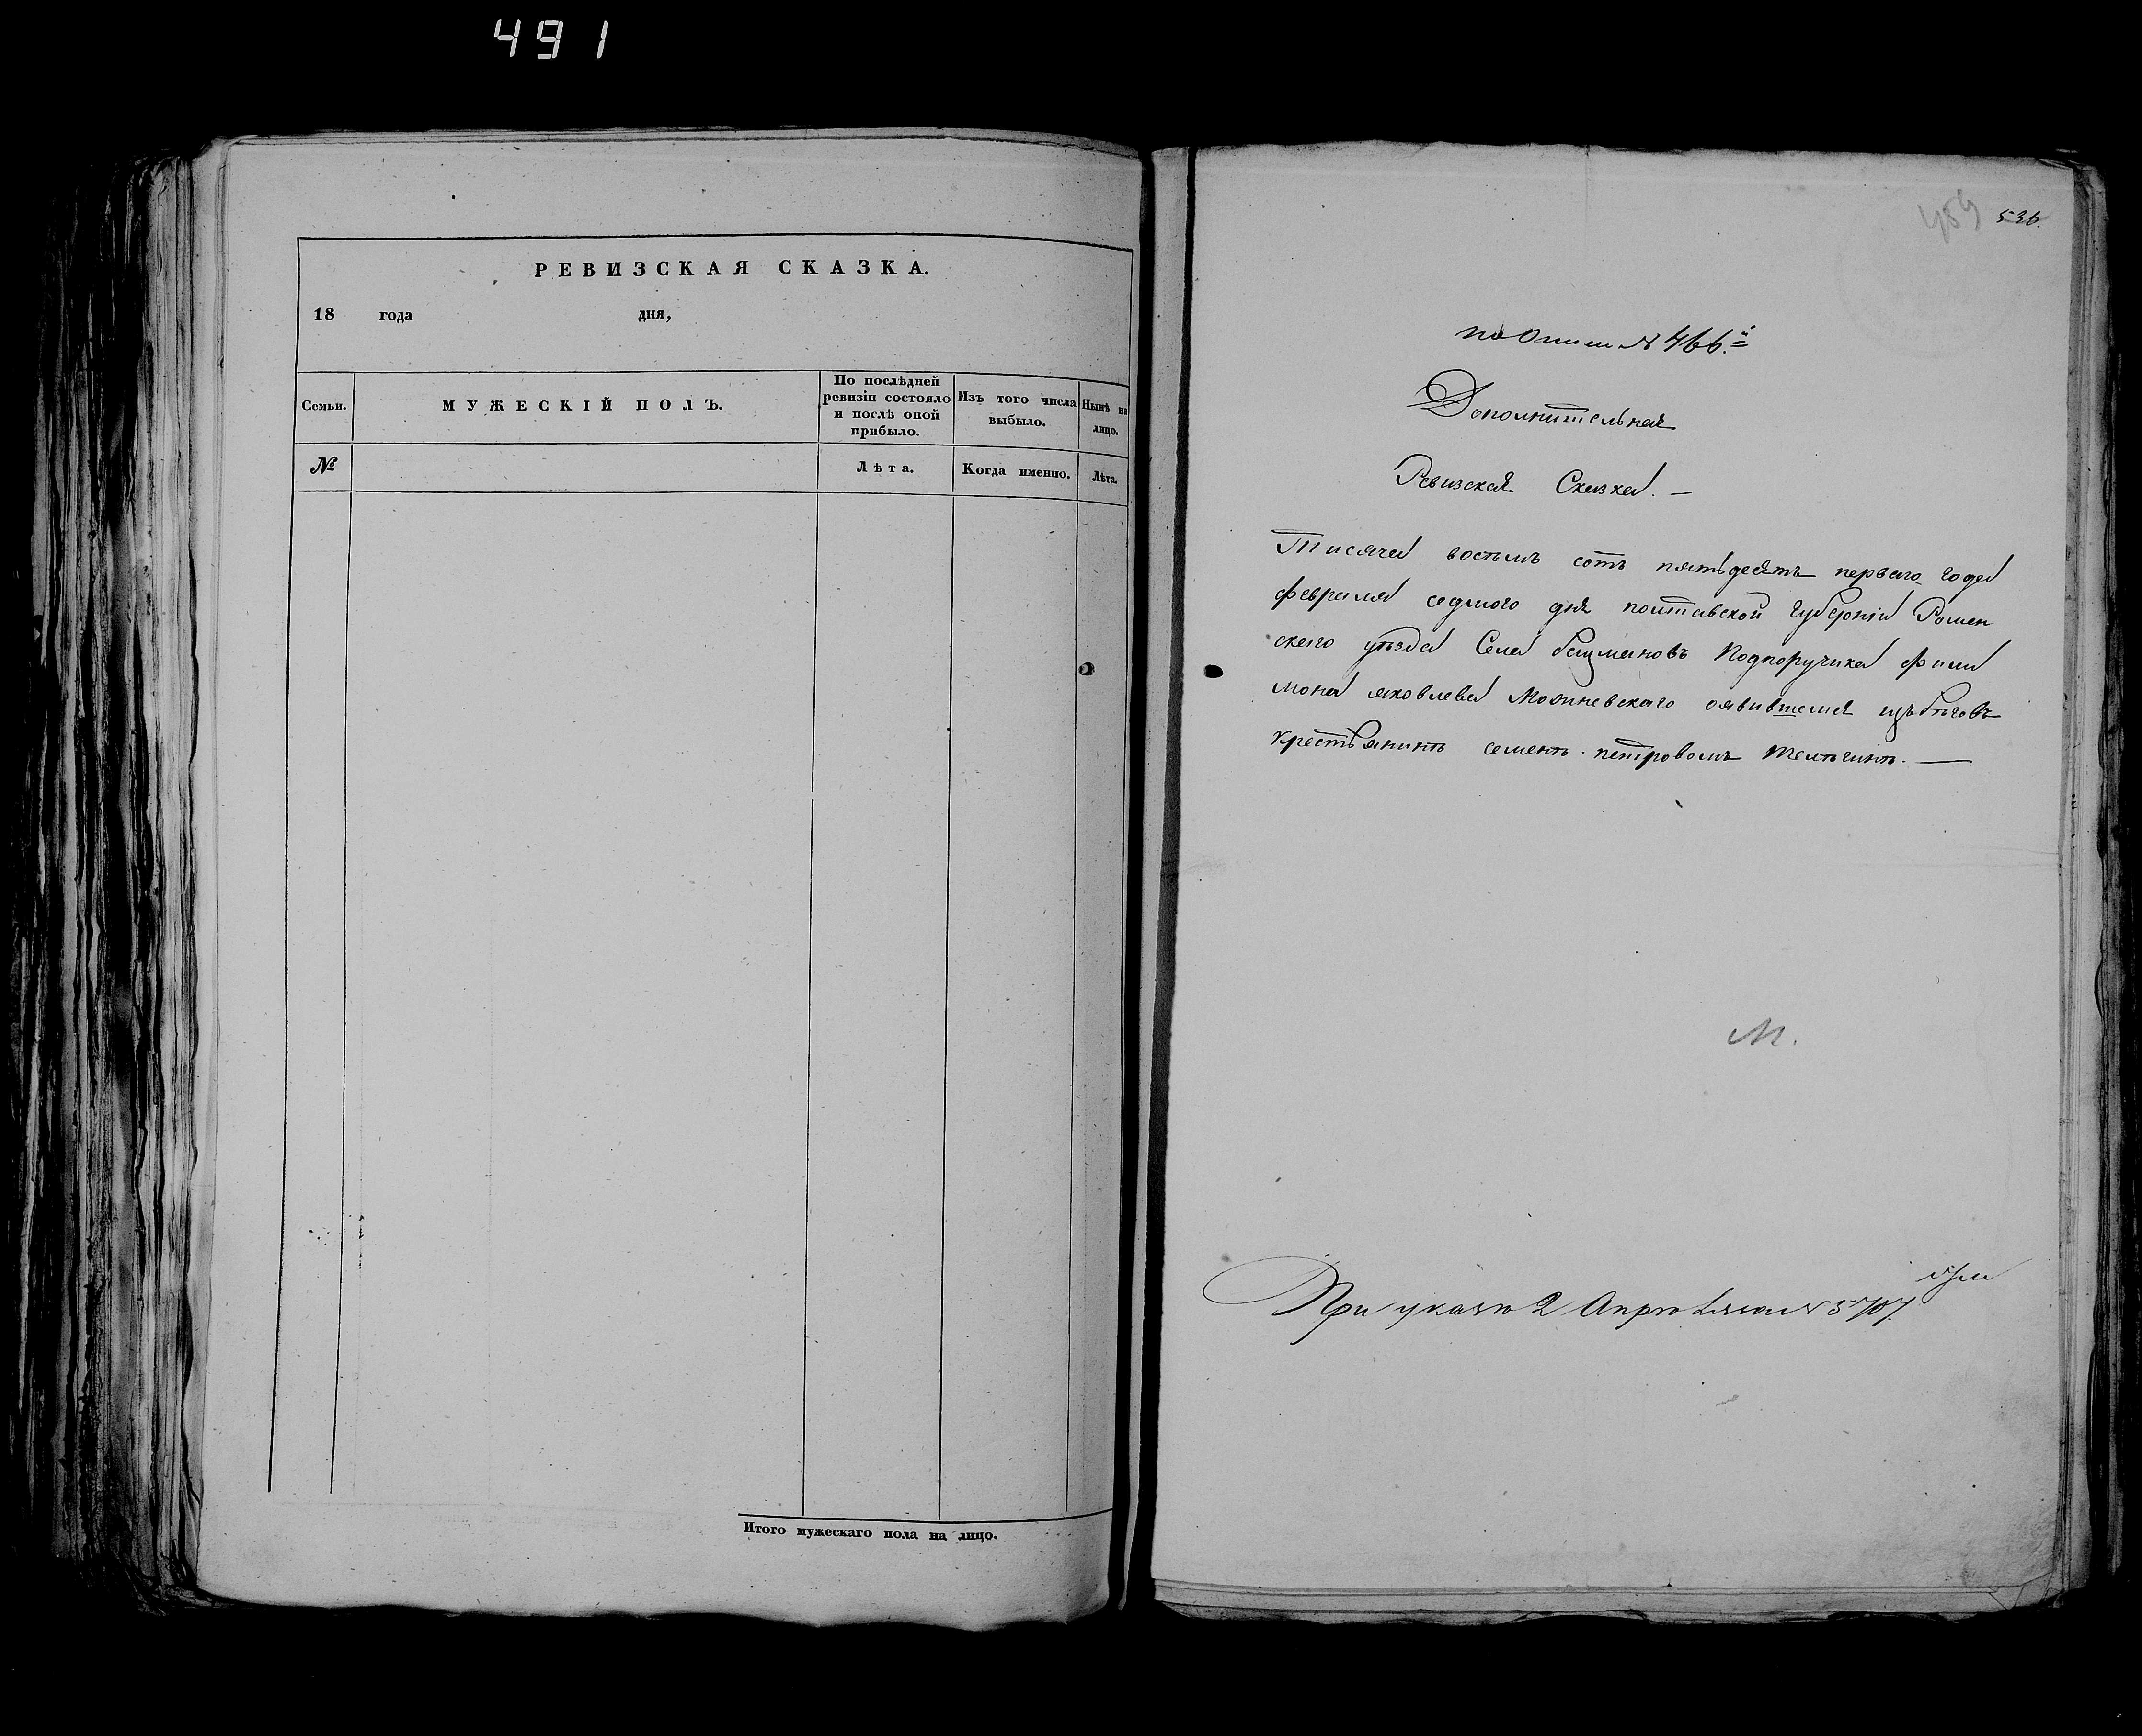 491
РЕВИЗСКАЯ СКАЗКА.
18 года дня,
Семьи.
МУЖЕСКІЙ ПОЛЪ.
По послѣдней ревизіи состояло и послѣ оной прибыло.
Изъ того числа выбыло.
Нынѣ на лицо.
№
Лѣта.
Когда именно.
Лѣта.
Итого мужескаго пола на лицо.
489 536.
по Описи № 466.й
Дополнительная
Ревизская Сказка. —
Тисяча восемъ сотъ пятьдесятъ первого года
февраля седмого дня полтавской Губерніи Ромен
ского уѣзда Села Подпоручика Фили
мона яковлева оявившемся изъ бѣговъ
крестьянинѣ семенѣ петровомъ —
М.
При указѣ 2 Апрѣля № 5707.